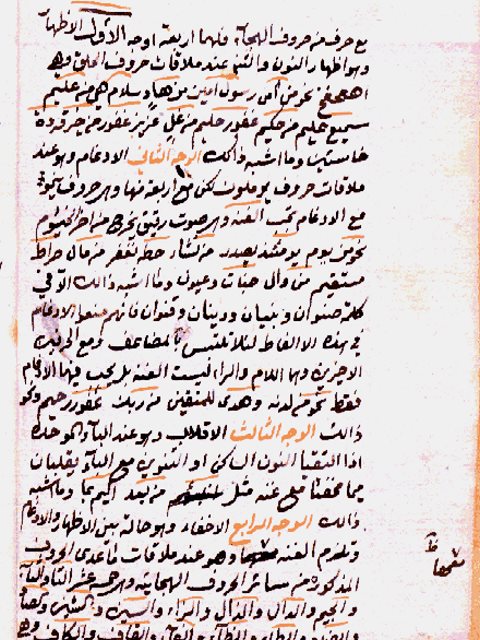 مع حرف من حروف الهجآء فلهما اربعة اوجه الاول الاظهار
وهو اظهار النون والتنوين عند ملاقات حروف الحلق وهي
اهعحغخ نحو من آمن رسول امين من هاد سلام هي من عليم
سميع عليم من حكيم غفور حليم من غل عزيز غفور من خير قردة
خاسئين وما اشبه ذالك الوجه الثانى الادغام وهو عند
ملاقات حروف يرملون لكن مع اربعة منها وهي حروف ينمو
مع الادغام تجب الغنة وهي صوت رقيق يخرج من آخر الخيشوم
نحو من يوم يومئذ يصدر من نشاء حطة نغفر من مال صراط
مستقيم من وال جنات وعيون وما اشبه ذالك الا في
كلمة صنوان و بنيان ودينان وقنوان فانهم منعوا الادغام
في هذه الالفاظ لئلا تلتبس بالمضاعف ومع الحرفين
الاخيرين وهما اللام والراء ليست الغنة بل يجب فيهما الادغام
فقط نحو من لدنه وهدى للمتقين من ربك غفور رحيم ونحو
ذالك الوجه الثالث الاقلاب وهو عند البآء الموحدة
اذا التقتا النون الساكن او التنوين مع البآء يقلبان
ميما مخفتا مع غنة مثل من بعد اليم بما وما اشبه
ذالك الوجه الرابع الاخفاء وهو حالة بين الاظهار والادغام
وتلزم الغنة معهما وهو عند ملاقات ما عدى الحروف
المذكورة من سائر الحروف الهجائية وهي خمسة عشر التاء والثآء
والجيم والدال والذال والزاء والسين والشين والصاد
والضاد والطاء والظآء والفآء والقاف والكاف وهي
معهما